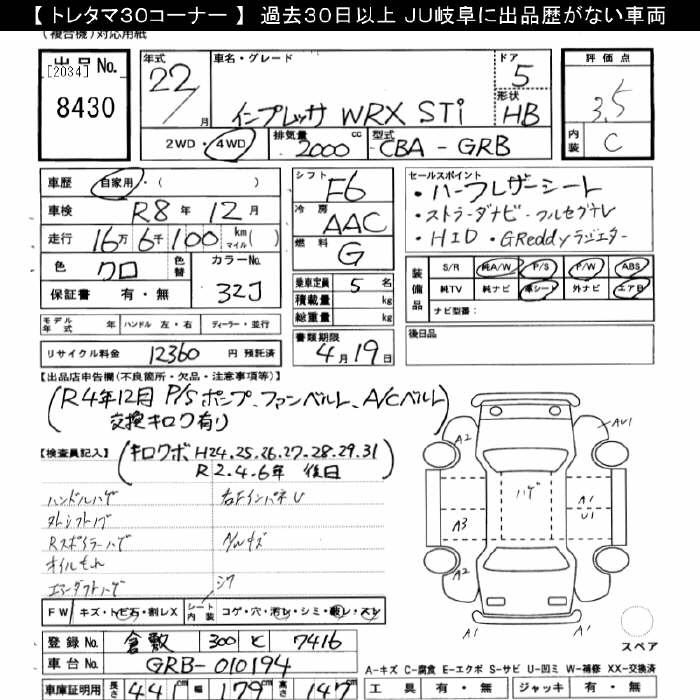 【 トレタマ30コーナー 】 過去30日以上 JU岐阜に出品歴がない車両
(複合機)対応用紙
出品No. [2034] 8430
年式 22/ 月
車名・グレード インプレッサ WRX STi
ドア 5
形状 HB
評価点 3.5
内装 C
2WD・4WD
排気量 2000 cc
型式 CBA - GRB
車歴 自家用・( )
車検 R8年 12月
走行 16万 6千 100 km マイル( )
色 クロ 色替 カラーNo. 32J
保証書 有・無
シフト F6
冷房 AAC
燃料 G
乗車定員 5 名
積載量 kg
総重量 kg
書類期限 4月19日
セールスポイント
・ハーフレザーシート
・ストラーダナビ・フルセグTV
・HID ・GReddyラジエター
装備品 S/R 純A/W P/S P/W ABS
純TV 純ナビ 革シート 外ナビ エアB
ナビ型番:
モデル年式 年 ハンドル 左・右 ディーラー・並行
後日品
リサイクル料金 12360 円 預託済
【出品店申告欄(不良箇所・欠品・注意事項等)】
(R4年12月 P/Sポンプ、ファンベルト、A/Cベルト)
交換キロク有り
【検査員記入】
(キロクボ H24.25.26.27.28.29.31
R2.4.6年 後日)
ハンドルハゲ 右FインパネU
Rスポイラーハゲ
オイルもれ
シワ
FW キズ・トビ石・割レX シート内装 コゲ・穴・汚レ・シミ・破レ・スレ
登録No. 倉敷 300 と 7416
車台No. GRB-010194
車庫証明用 長さ 441 cm 幅 179 cm 高さ 147 cm
A2 AU1
ハゲ A1
A3 U1
A2 A2
A1 A1
スペア
A-キズ C-腐食 E-エクボ S-サビ U-凹ミ W-補修 XX-交換済
工具 有・無 ジャッキ 有・無